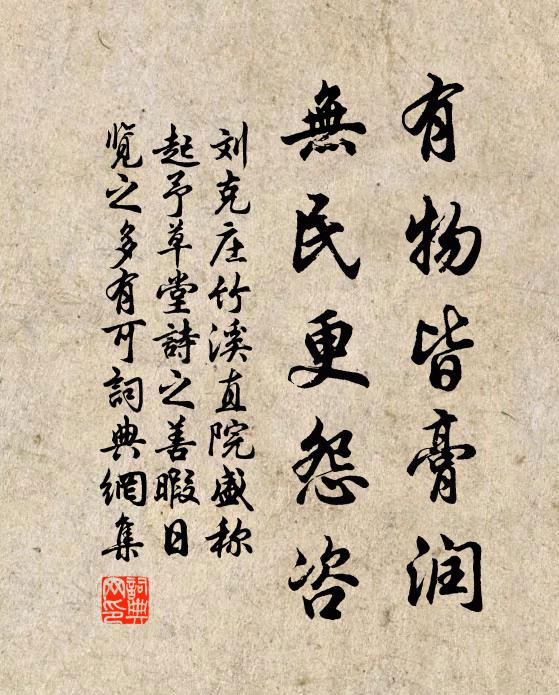 有物皆膏润
無民更怨咨
刘克庄竹溪直院盛称
起予草堂詩之善暇日
览之多有可詞典網集
詞典網印